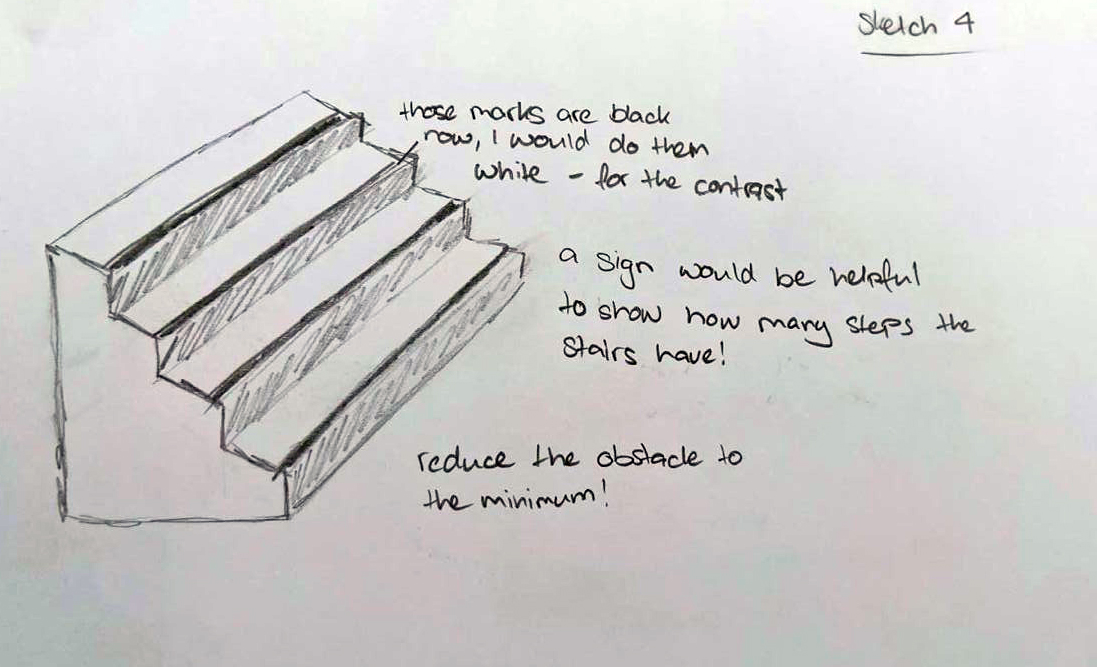 Sketch 4
those marks are black
now, I would do them
white - for the contrast
a sign would be helpful
to show how many steps the
stairs have!
reduce the obstacle to
the minimum!